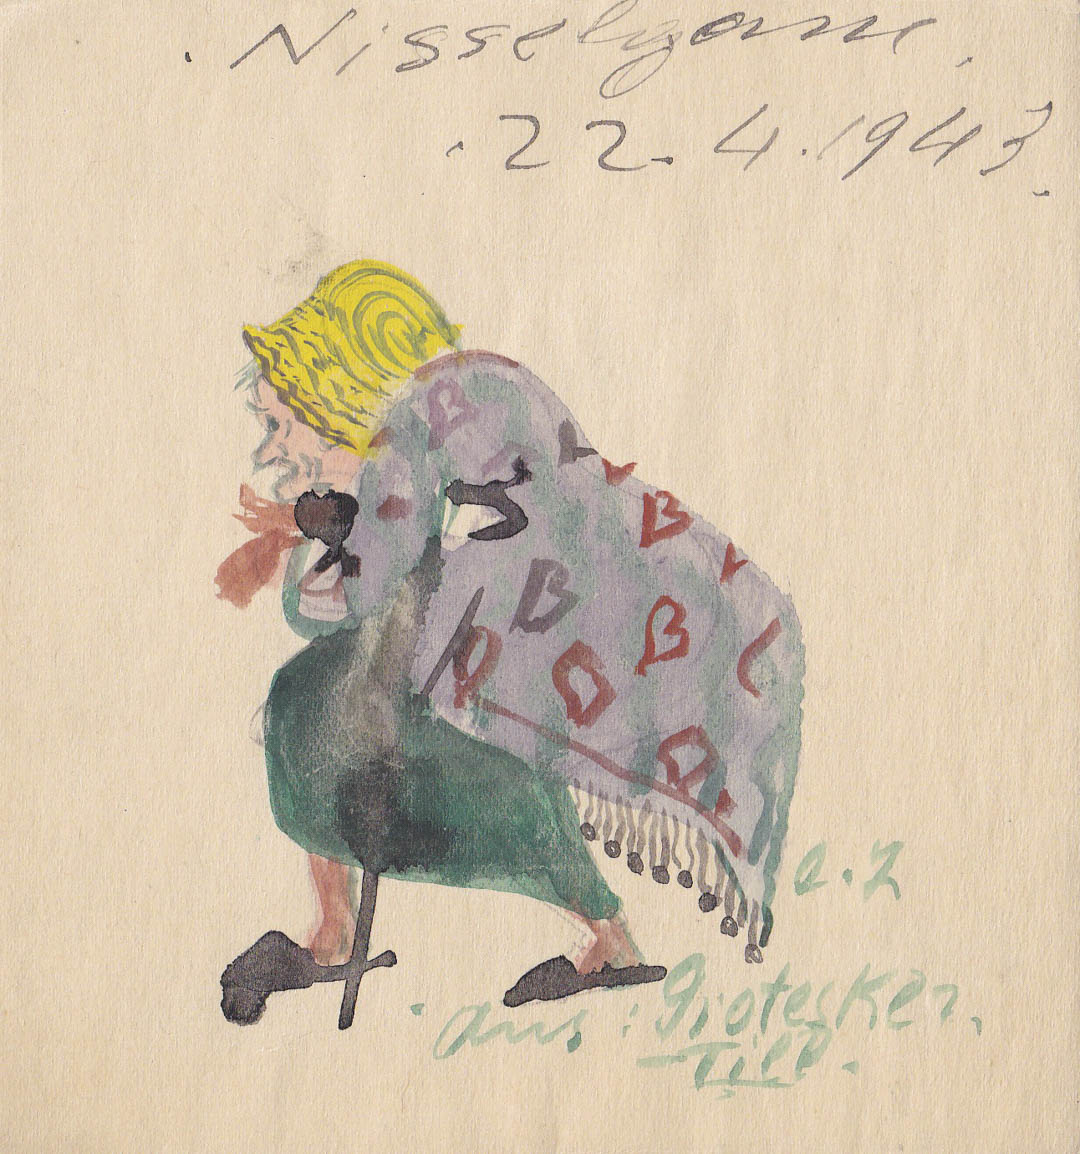 . Nisselgam.
.22.4.1943.
e.Z
. aus: Grotesker.
Till.